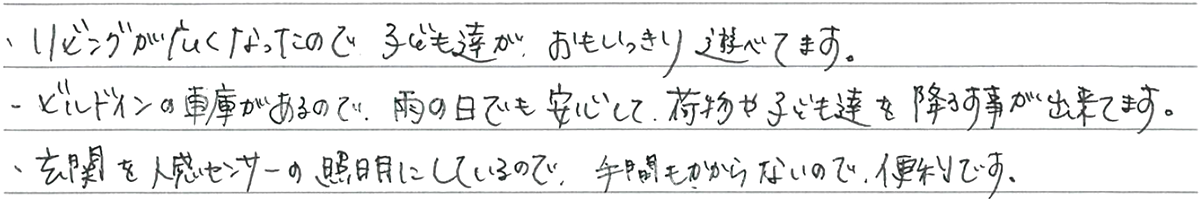 ・リビングが広くなったので、子ども達が、おもいっきり遊べてます。
・ビルドインの車庫があるので、雨の日でも安心して、荷物や子ども達を降ろす事が出来てます。
・玄関を人感センサーの照明にしているので、手間もかからないので、便利です。